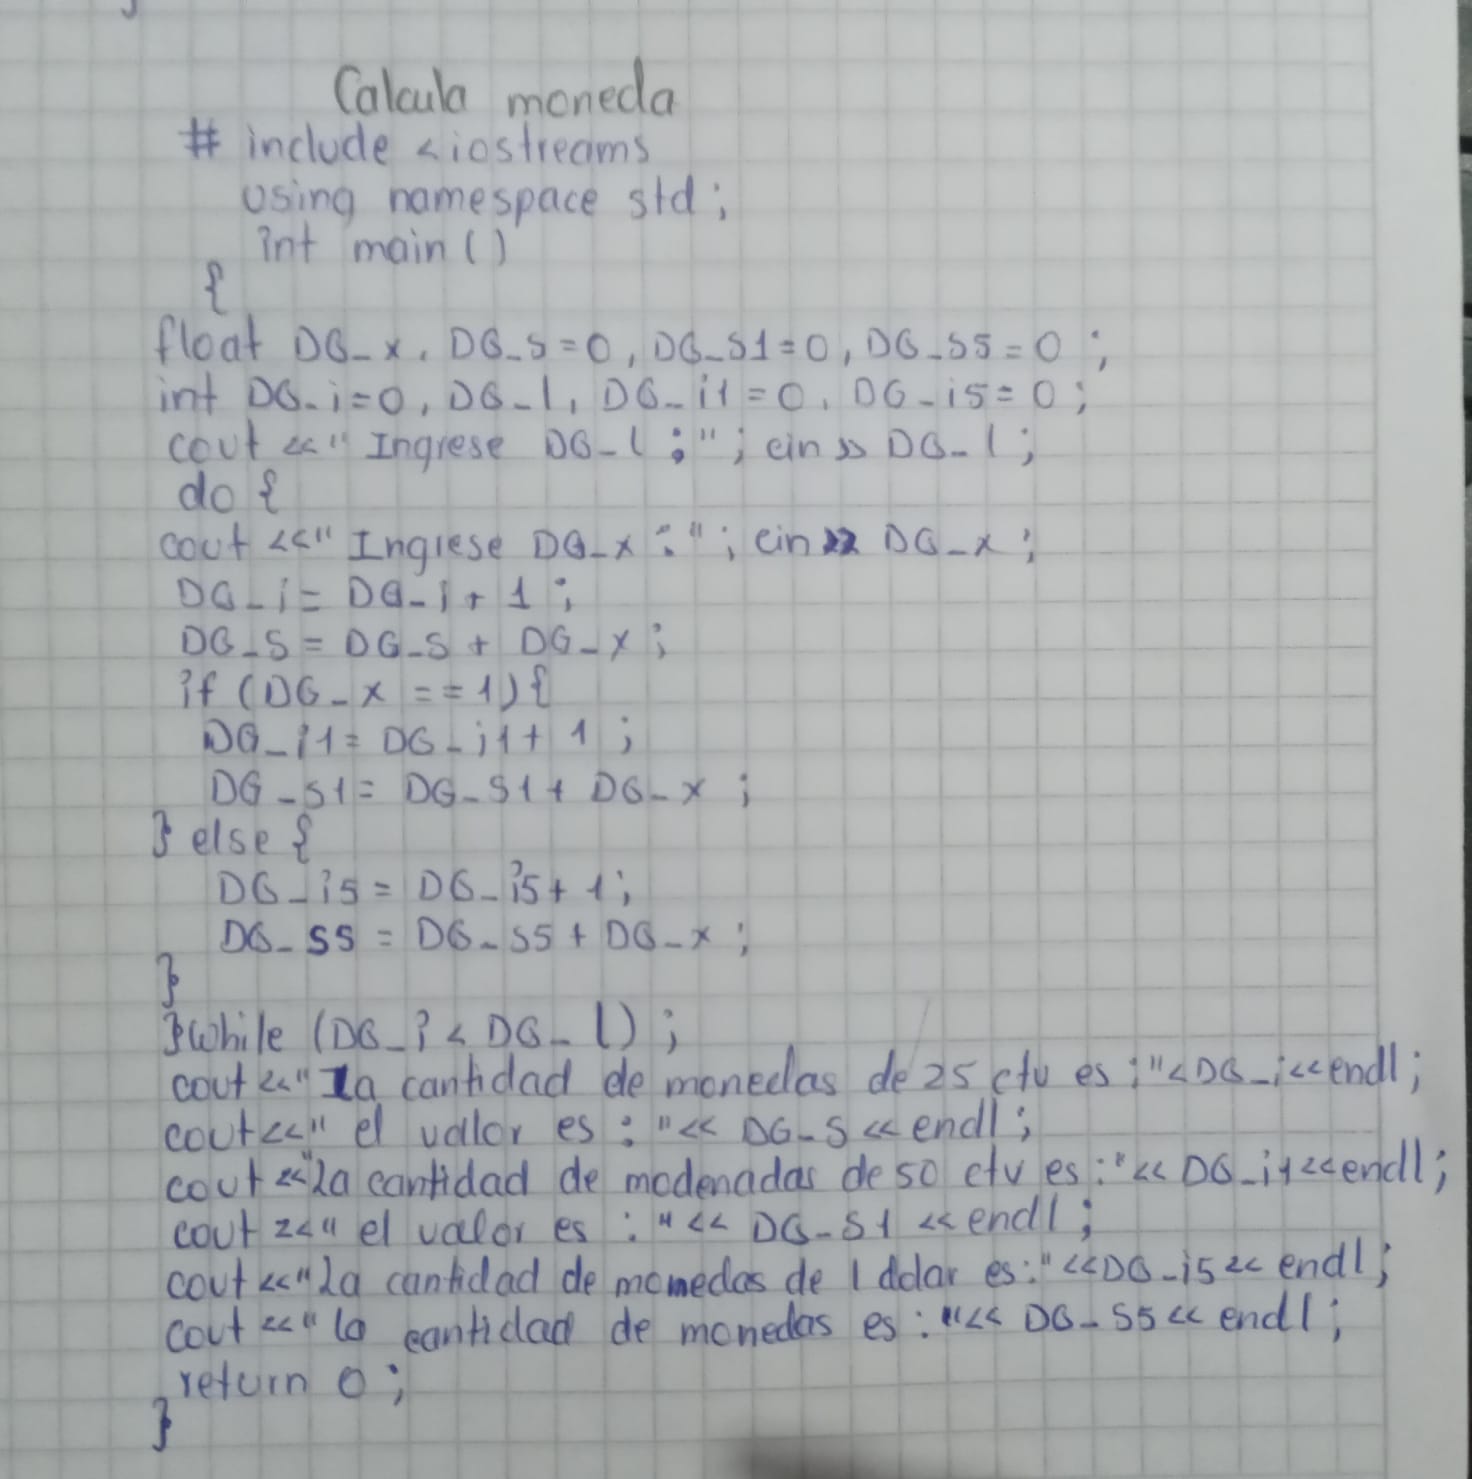 Calcula moneda
# include <iostreams
using namespace std;
int main ()
{
float DG_x, DG_S=0, DG_S1=0, DG_S5=0 ;
int DG_i=0, DG_l, DG_i1=0, DG_i5=0;
cout <<" Ingrese DG_l :"; cin >> DG_l;
do {
cout <<" Ingrese DG_x :"; cin >> DG_x;
DG_i= DG_i+ 1;
DG_S= DG_S + DG_x;
if (DG_x ==1){
DG_i1= DG_i1+ 1;
DG_S1= DG_S1+ DG_x ;
} else {
DG_i5= DG_i5+1;
DG_S5 = DG_S5+ DG_x ;
}
}while (DG_i < DG_l);
cout <<" La cantidad de monedas de 25 ctv es :"<DG_i<<endl;
cout<<" el valor es : "<< DG_S << endl;
cout <<"La cantidad de modenadas de 50 ctv es:"<< DG_i1<<endl;
cout <<" el valor es : "<< DG_S1 << endl;
cout <<"La cantidad de monedas de 1 dolar es:"<<DG_i5<< endl;
cout <<" la cantidad de monedas es : "<< DG_S5<< endl;
return 0;
}